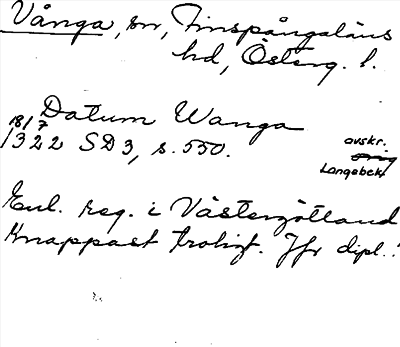 Vånga, sn, Finspångaläns
hd, Österg. l.
Datum Wanga
18/7
1322 SD3, s. 550.
avskr.
Langebek
Enl. reg. i Västergötland
Knappast troligt. Jfr dipl.!